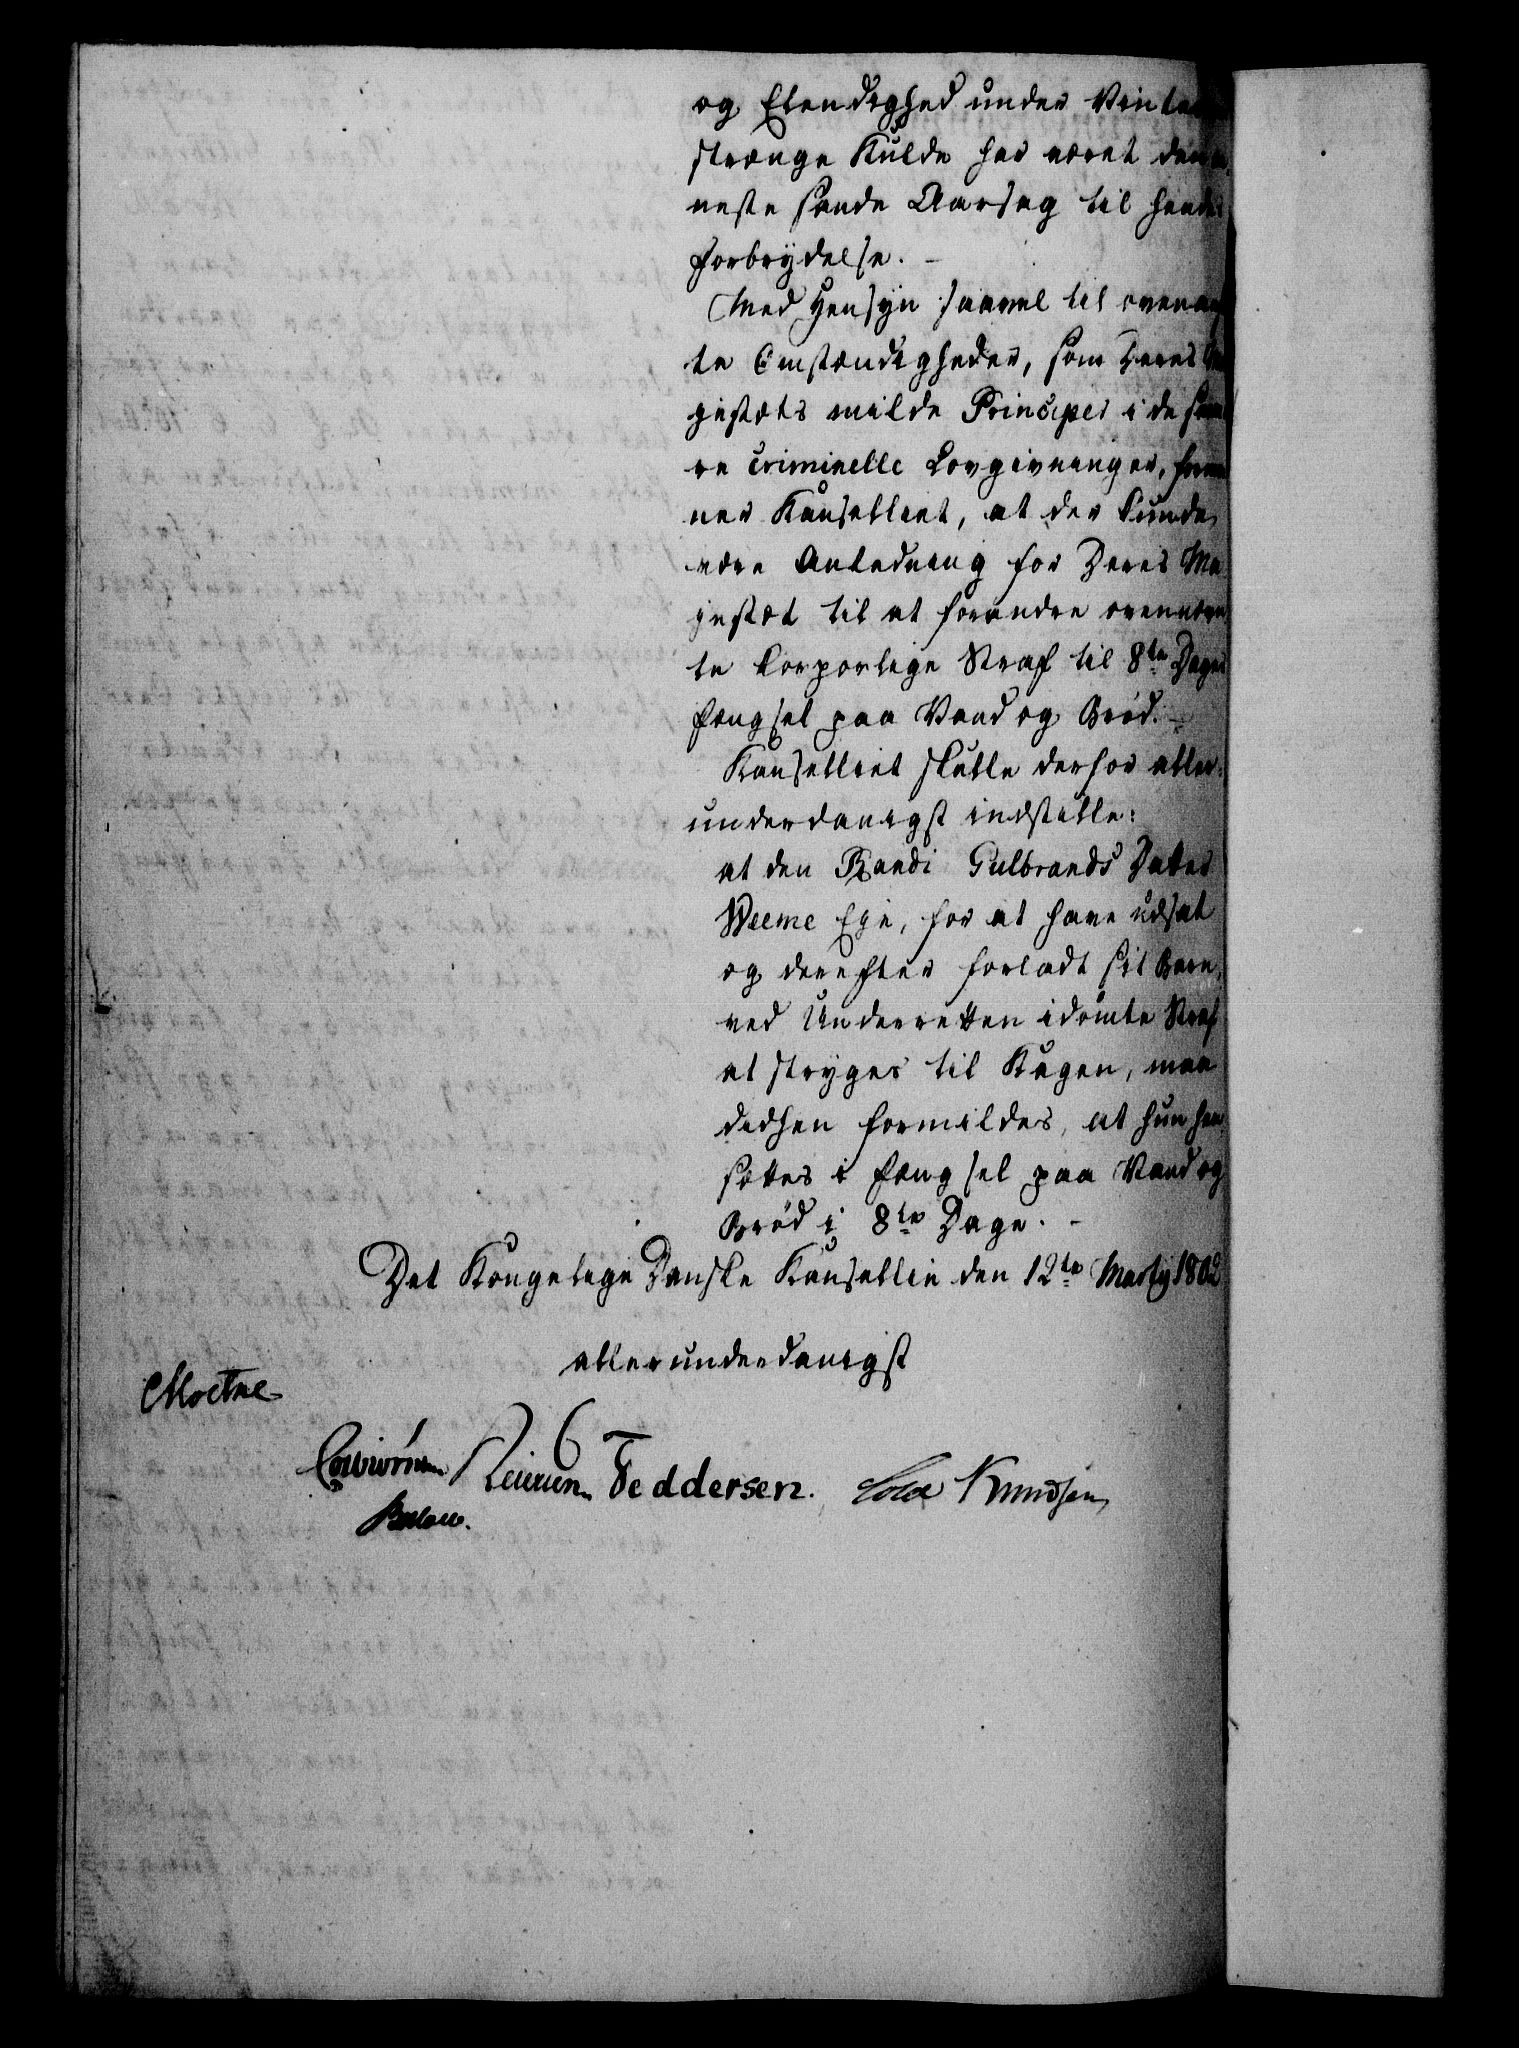 og Elendighed under Vinte
strænge Kulde har været den e
neste sande Aarsag til hendes
Forbrydelse. –
Med Hensyn saavel til ovenan
te Omstændigheder, som Deres
jestæts milde Principer i de se
re criminelle Lovgivninger, for
ner Kanselliet, at der kunde
være Anledning for Deres Ma
jestæt til at forandre ovennævn
te korporlige Straf til 8te Dages
Fængsel paa Vand og Brød. –
Kanselliet skulle derfor aller:
underdanigst indstille:
at den Randi Gulbrands Datter
Weeme Eje, for at have udsat
og derefter forladt sit Barn,
ved Underretten idømte Straf
at stryges til Kagen, maa
dedhen formildes, at hun hen
sættes i Fængsel paa Vand og
Brød i 8te Dage. –
Det Kongelige Danske Kansellie den 12te Martij 1802
allerunderdanigst
Moltke
Colbiørnsen Feddersen. Cold Knudsen
Bülow.